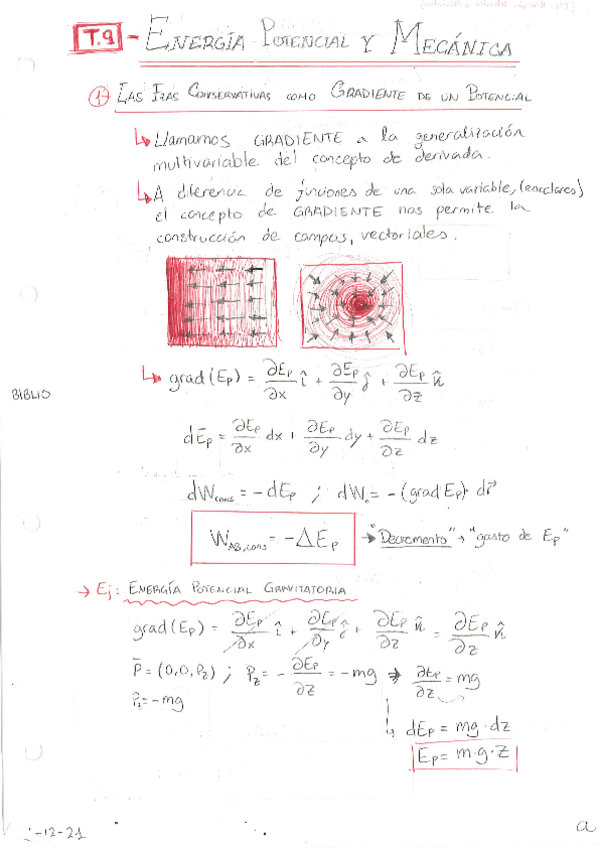 T.9 - ENERGÍA POTENCIAL Y MECÁNICA
1- LAS FZAS CONSERVATIVAS COMO GRADIENTE DE UN POTENCIAL
↳ Llamamos GRADIENTE a la generalización
multivariable del concepto de derivada.
↳ A diferencia de funciones de una sola variable, (escalares)
el concepto de GRADIENTE nos permite la
construcción de campos, vectoriales.
↳ grad (Ep) = ∂Ep/∂x î + ∂Ep/∂y ĵ + ∂Ep/∂z k̂
BIBLIO
dEp = ∂Ep/∂x dx + ∂Ep/∂y dy + ∂Ep/∂z dz
dWcons = -dEp ; dWc = -(grad Ep) · dr⃗
WAB,cons = -ΔEp → "Decremento" → "gasto de Ep"
→ Ej: ENERGÍA POTENCIAL GRAVITATORIA
grad (Ep) = ∂Ep/∂x î + ∂Ep/∂y ĵ + ∂Ep/∂z k̂ = ∂Ep/∂z k̂
P̄ = (0,0,Pz) ; Pz = - ∂Ep/∂z = -mg ⇒ ∂Ep/∂z = mg
Pz = -mg
↳ dEp = mg · dz
Ep = m·g·z
-12-21
a